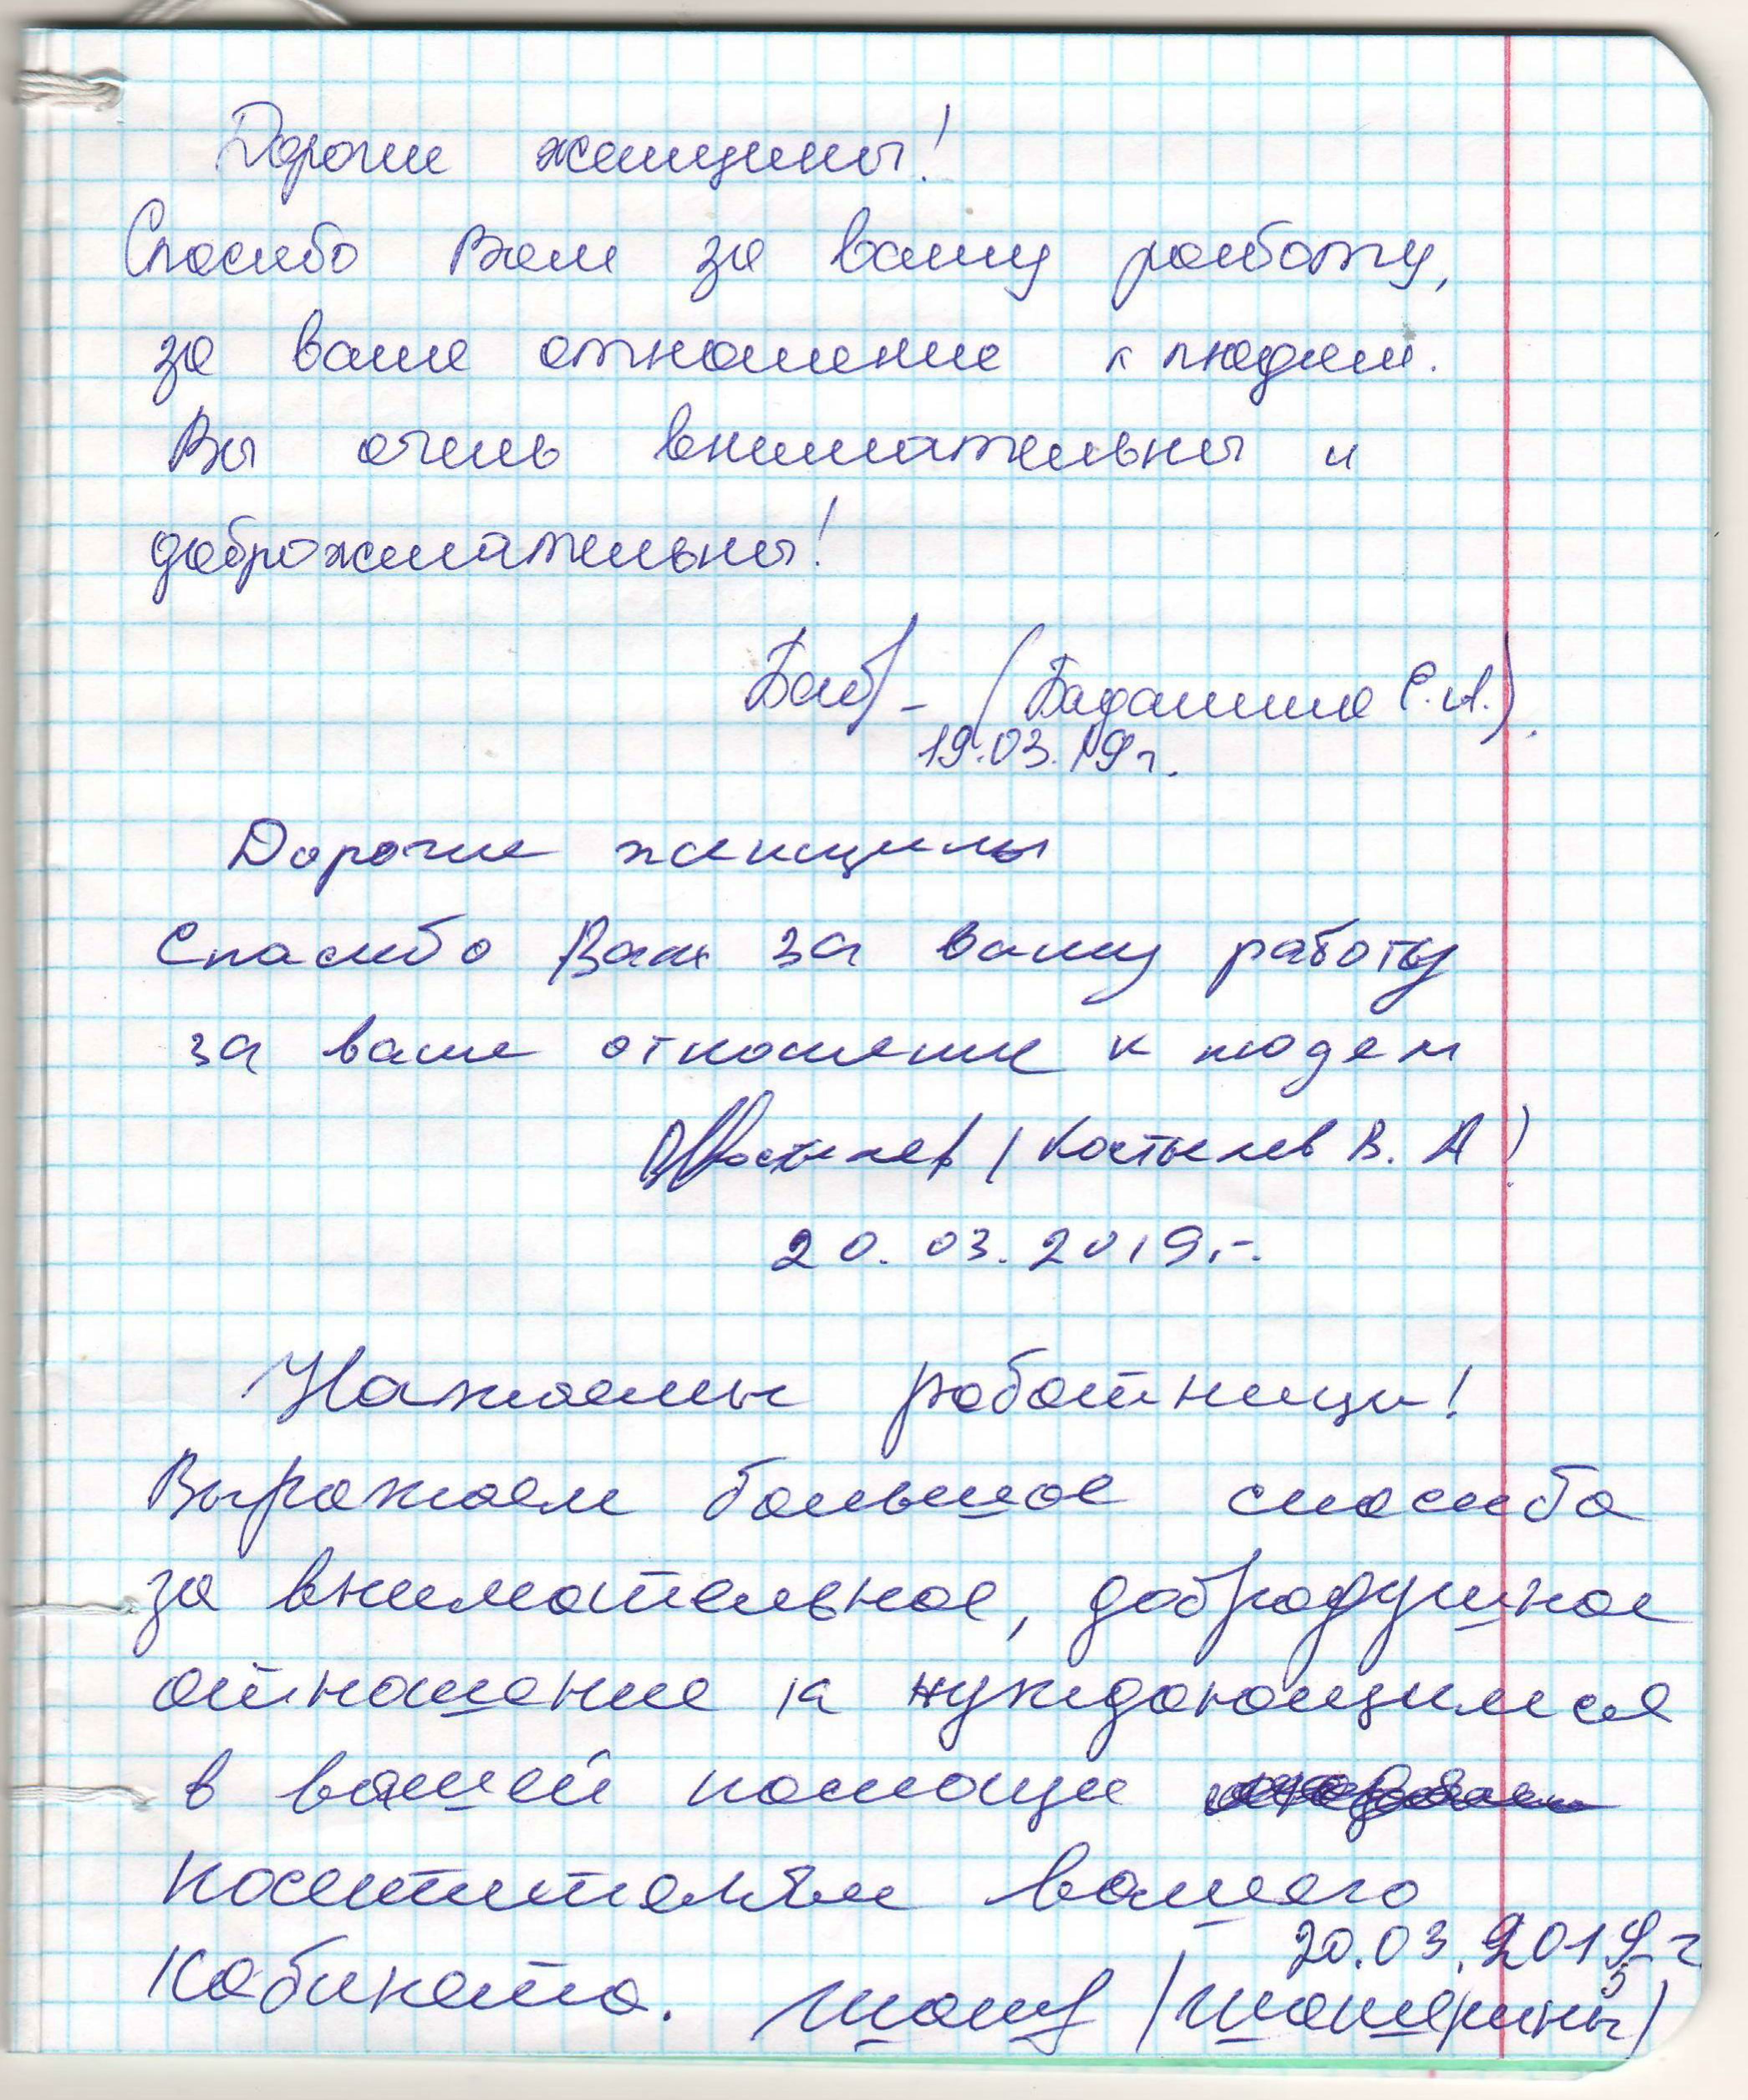 Дорогие женщины!
Спасибо Вам за вашу работу,
за ваше отношение к людям.
Вы очень внимательны и
доброжелательны!
(Бадашина С.А.).
19.03.19г.
Дорогие женщины
Спасибо Вам за вашу работу
за ваше отношение к людем
Костылев (Костылев В. А)
20.03.2019г.
работницы!
Выражаем большое спасибо
за внимательное, добродушное
отношение к нуждающимся
в вашей помощи
посетителям вашего
20.03.2019г
кабинета.